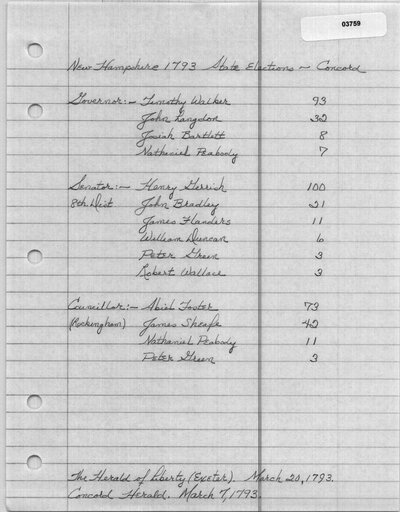 03759
New Hampshire 1793 State Elections - Concord
Governor:- Timothy Walker 93
John Langdon 32
Josiah Bartlett 8
Nathaniel Peabody 7
Senator:- Henry Gerrish 100
8th Dist John Bradley 21
James Flanders 11
William Duncan 6
Peter Green 3
Robert Wallace 3
Councillor:- Abiel Foster 73
(Rockingham) James Sheafe 42
Nathaniel Peabody 11
Peter Green 3
The Herald of Liberty (Exeter). March 20, 1793.
Concord Herald. March 7, 1793.